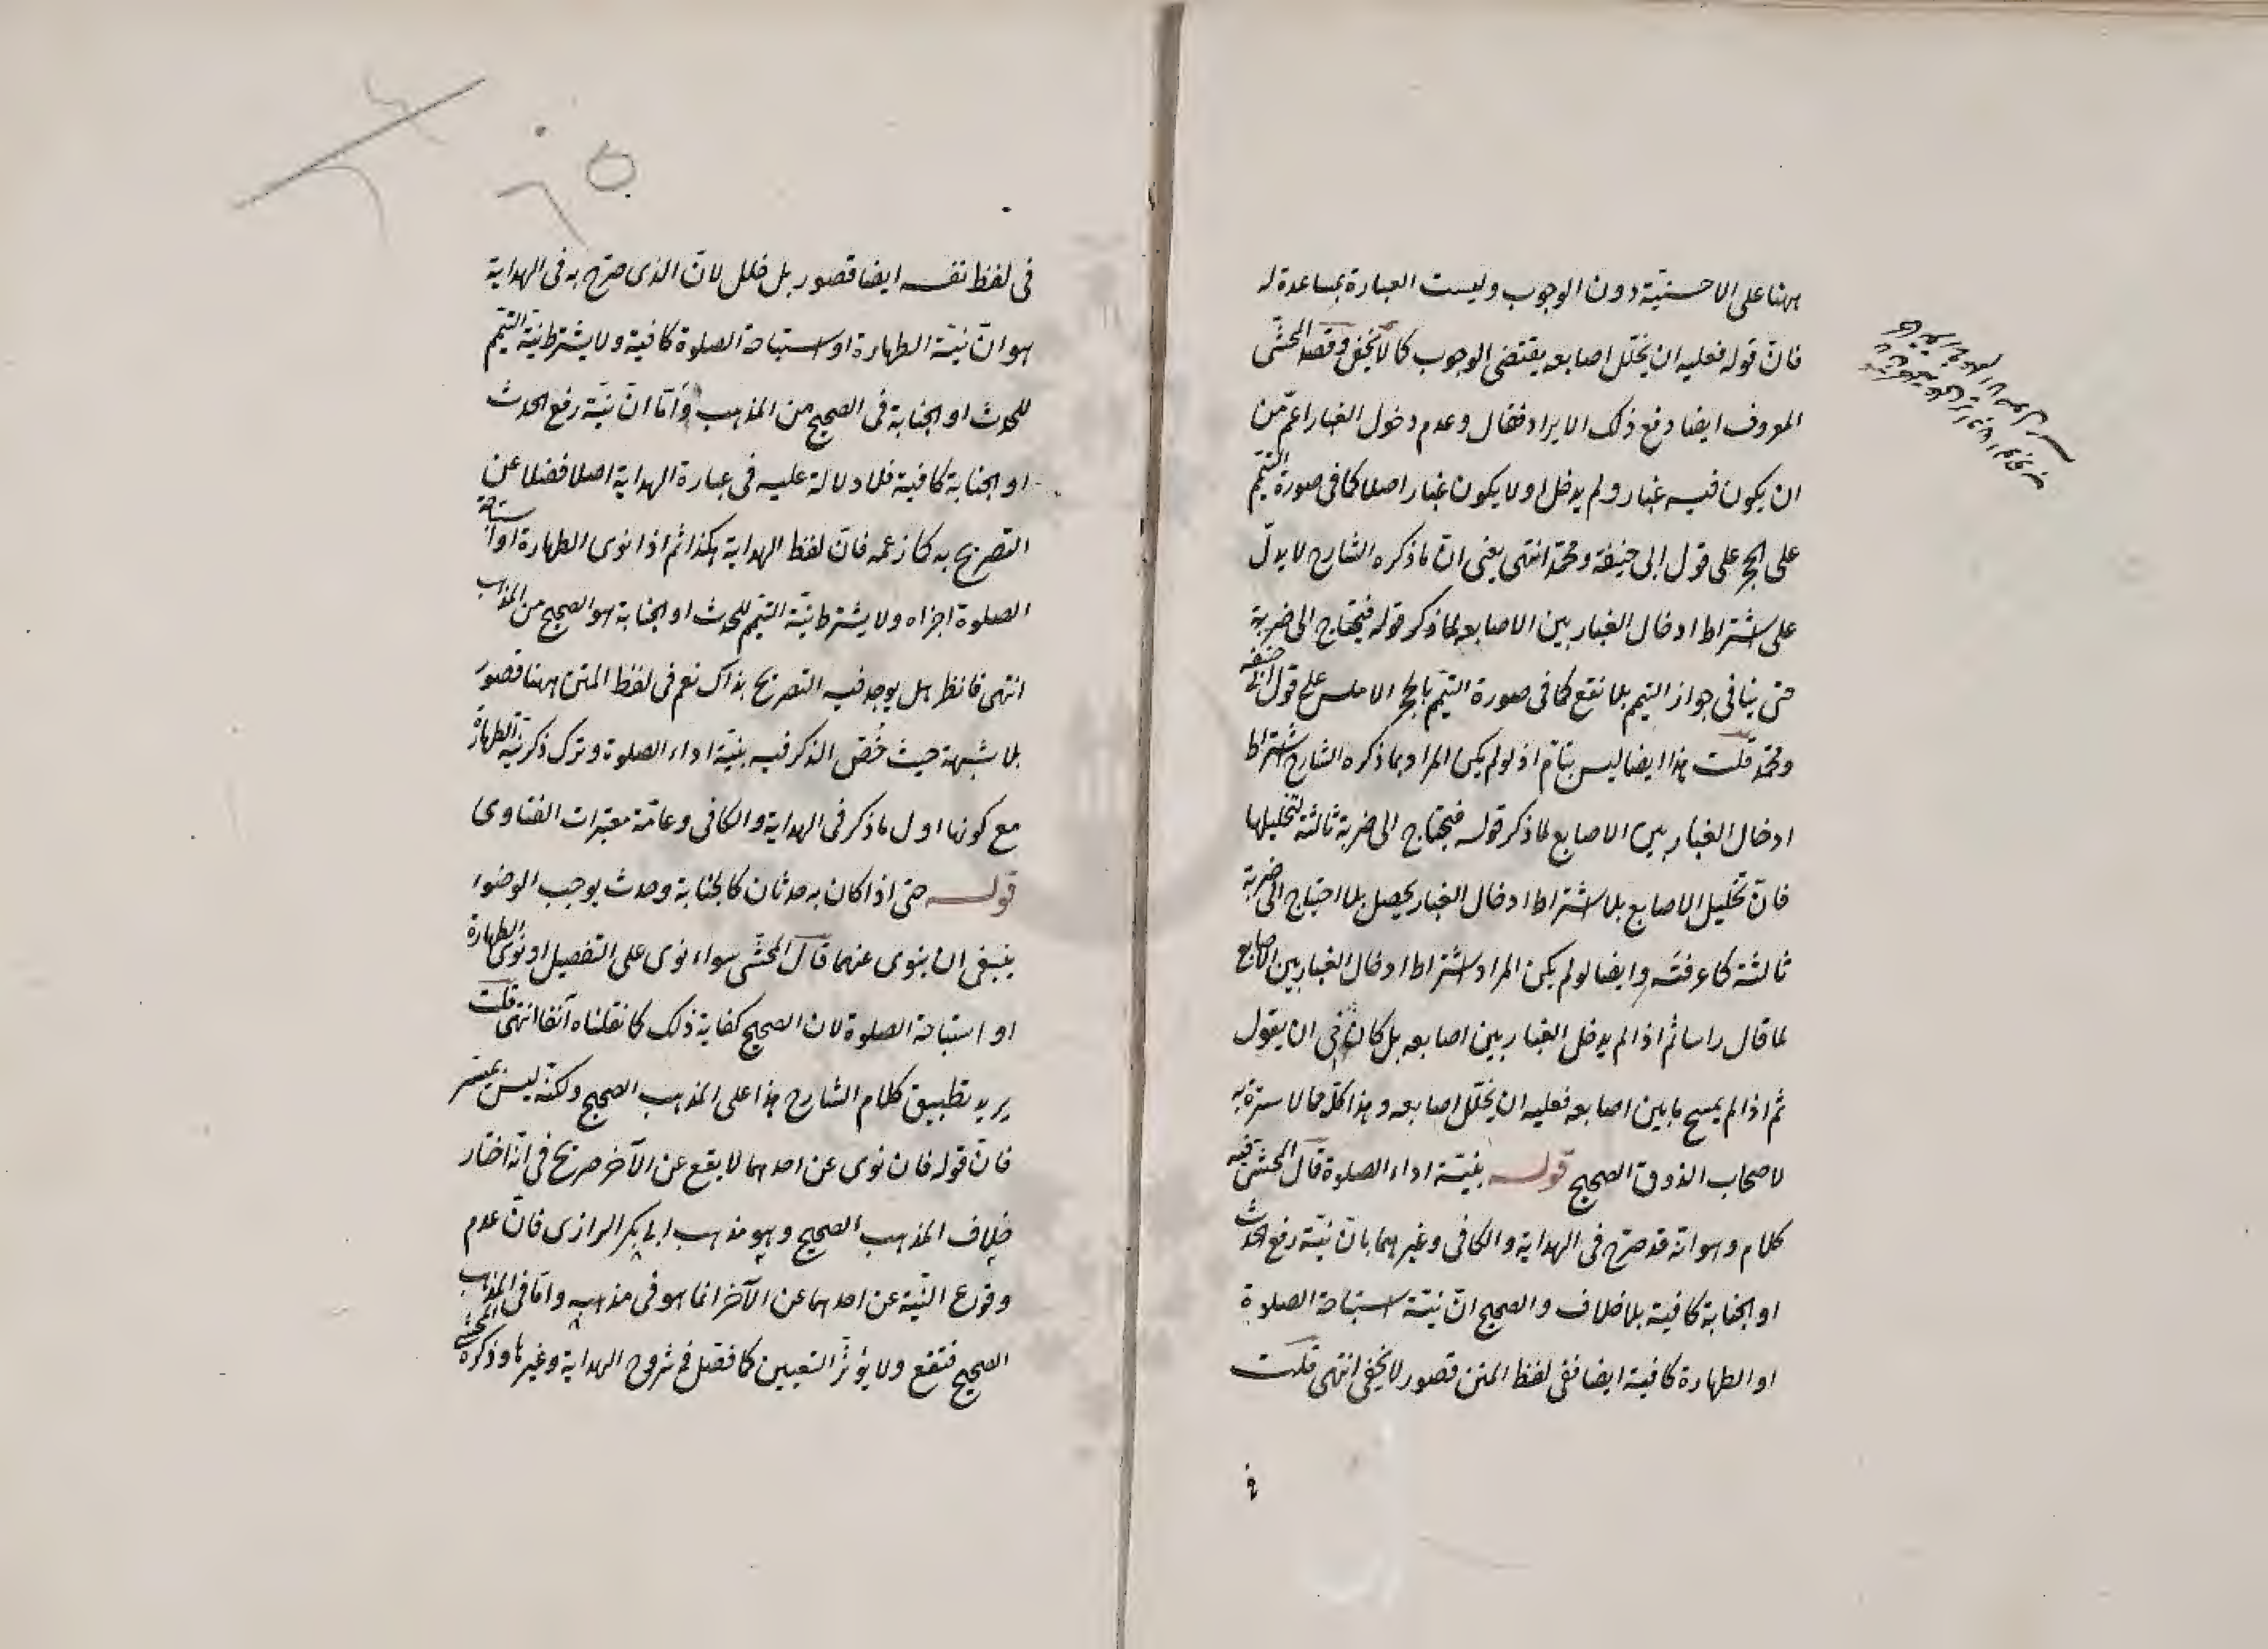 ههنا على الاحسنية دون الوجوب وليست العبارة بمساعدة له
فان قوله فعليه ان يخلل اصابعه يقتضى الوجوب كما لا يخفى وقصد المحشى
المعروف ايضا دفع ذلك الايراد فقال وعدم دخول الغبار اعم من
ان يكون فيه غبار ولم يدخل او لا يكون غبار اصلا كما فى صورة التيمم
على الحجر على قول ابى حنيفة ومحمد انتهى يعنى ان ما ذكره الشارح لا يدل
على اشتراط ادخال الغبار بين الاصابع لما ذكر قوله فيحتاج الى ضربة
حتى ينافى جواز التيمم بلا نقع كما فى صورة التيمم بالحجر الاملس على قول ابى حنيفه
ومحمد قلت هذا ايضا ليس بتام اذ لو لم يكن المراد بما ذكره الشارح اشتراط
ادخال الغبار بين الاصابع لما ذكر قوله فيحتاج الى ضربة ثالثة لتخليلها
فان تخليل الاصابع بلا اشتراط ادخال الغبار يحصل بلا احتياج الى ضربة
ثالثة كما عرفته وايضا لو لم يكن المراد اشتراط ادخال الغبار بين الاصابع
لما قال راسا ثم اذا لم يدخل الغبار بين اصابعه بل كان ان يقول
ثم اذا لم يمسح ما بين اصابعه فعليه ان يخلل اصابعه وهذا كله مما لا سترة به
لاصحاب الذوق الصحيح قوله بنية اداء الصلوة قال المحشى فيه
كلام وهو انه قد صرح فى الهداية والكافى وغيرهما بان نية رفع الحدث
او الجنابة كافية بلا خلاف والصحيح ان نية استباحة الصلوة
او الطهارة كافية ايضا ففى لفظ المتن قصور لا يخفى انتهى قلت
فى
فى لفظ نفسه ايضا قصور بل خلل لان الذى صرح به فى الهداية
هو ان نية الطهارة او استباحة الصلوة كافية ولا يشترط نية التيمم
للحدث او الجنابة فى الصحيح من المذهب واما ان نية رفع الحدث
او الجنابة كافية فلا دلالة عليه فى عبارة الهداية اصلا فضلا عن
التصريح به كما زعمه فان لفظ الهداية هكذا ثم اذا نوى الطهارة او استباحة
الصلوة اجزاه ولا يشترط نية التيمم للحدث او الجنابة هو الصحيح من المذهب
انتهى فانظر هل يوجد فيه التصريح بذاك نعم فى لفظ المتن ههنا قصور
بلا شبهة حيث خص الذكر فيه بنية اداء الصلوة وترك ذكر نية الطهارة
مع كونها اول ما ذكر فى الهداية والكافى وعامة معتبرات الفتاوى
قوله حتى اذا كان به حدثان كالجنابة وحدث يوجب الوضوء
ينبغى ان ينوى عنهما قال المحشى سواء نوى على التفصيل او نوى الطهارة
او استباحة الصلوة لان الصحيح كفاية ذلك كما نقلناه آنفا انتهى قلت
يريد تطبيق كلام الشارح هذا على المذهب الصحيح ولكنه ليس بميسر
فان قوله فان نوى عن احدهما لا يقع عن الآخر صريح فى انه اختار
خلاف المذهب الصحيح وهو مذهب ابى بكر الرازى فان عدم
وقوع النية عن احدهما عن الآخر انما هو فى مذهبه واما فى المذهب
الصحيح فتقع ولا يؤثر التعيين كما فصل فى شروح الهداية وغيرها وذكره المحشى